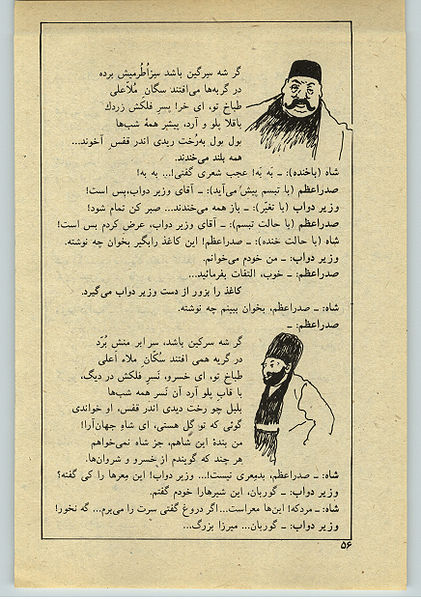 گر شه سرگین باشد سبزاُطُرمیش برده
در گریه‌ها می‌افتند سگان مُلاعلی
طباخ تو، ای خر! پسرِ فلکش زردك
باقلا پلو و آرد، پیشبر همهٔ شب‌ها
بول بول به‌رُخت ریدی اندر قفسِ آخوند...
همه بلند می‌خندند.
شاه (باخنده): ـ بَه بَه! عجب شعری گفتی!... به به!
صدراعظم (با تبسم پیش می‌آید): ـ آقای وزیر دواب، بس است!
وزیر دواب (با تغیّر): ـ باز همه می‌خندند... صبر کن تمام شود!
صدراعظم (با حالت تبسم): ـ آقای وزیر دواب، عرض کردم بس است!
شاه (با حالت خنده): ـ صدراعظم! این کاغذ رابگیر بخوان چه نوشته.
وزیر دواب: ـ من خودم می‌خوانم.
صدراعظم: ـ خوب، التفات بفرمائید...
کاغذ را بزور از دست وزیر دواب می‌گیرد.
شاه: ـ صدراعظم، بخوان ببینم چه نوشته.
صدراعظم: ـ
گر شه سرکین باشد، سر ابر منش بُرّد
در گریه همی افتند سُکّانِ ملاء اعلی
طباخ تو، ای خسرو، نَسرِ فلکش در دیگ،
با قابِ پلو آرد آن نَسر همه شب‌ها
بلبل چو رخت دیدی اندر قفس، او خواندی
گوئی که تو گل هستی، ای شاهِ جهان‌آرا!
من بندهٔ این شاهم، جز شاه نمی‌خواهم
هر چند که گویندم از خسرو و شروان‌ها.
شاه: ـ صدراعظم، بدمِعری نیست!... وزیر دواب! این مِعرها را کی گفته؟
وزیر دواب: ـ گوربان، این شیرهارا خودم گفتم.
شاه: ـ مردکه! این‌ها معراست... اگر دروغ گفتی سرت را می‌برم... گه نخور!
وزیر دواب: ـ گوربان... میرزا بزرگ...
۵۶